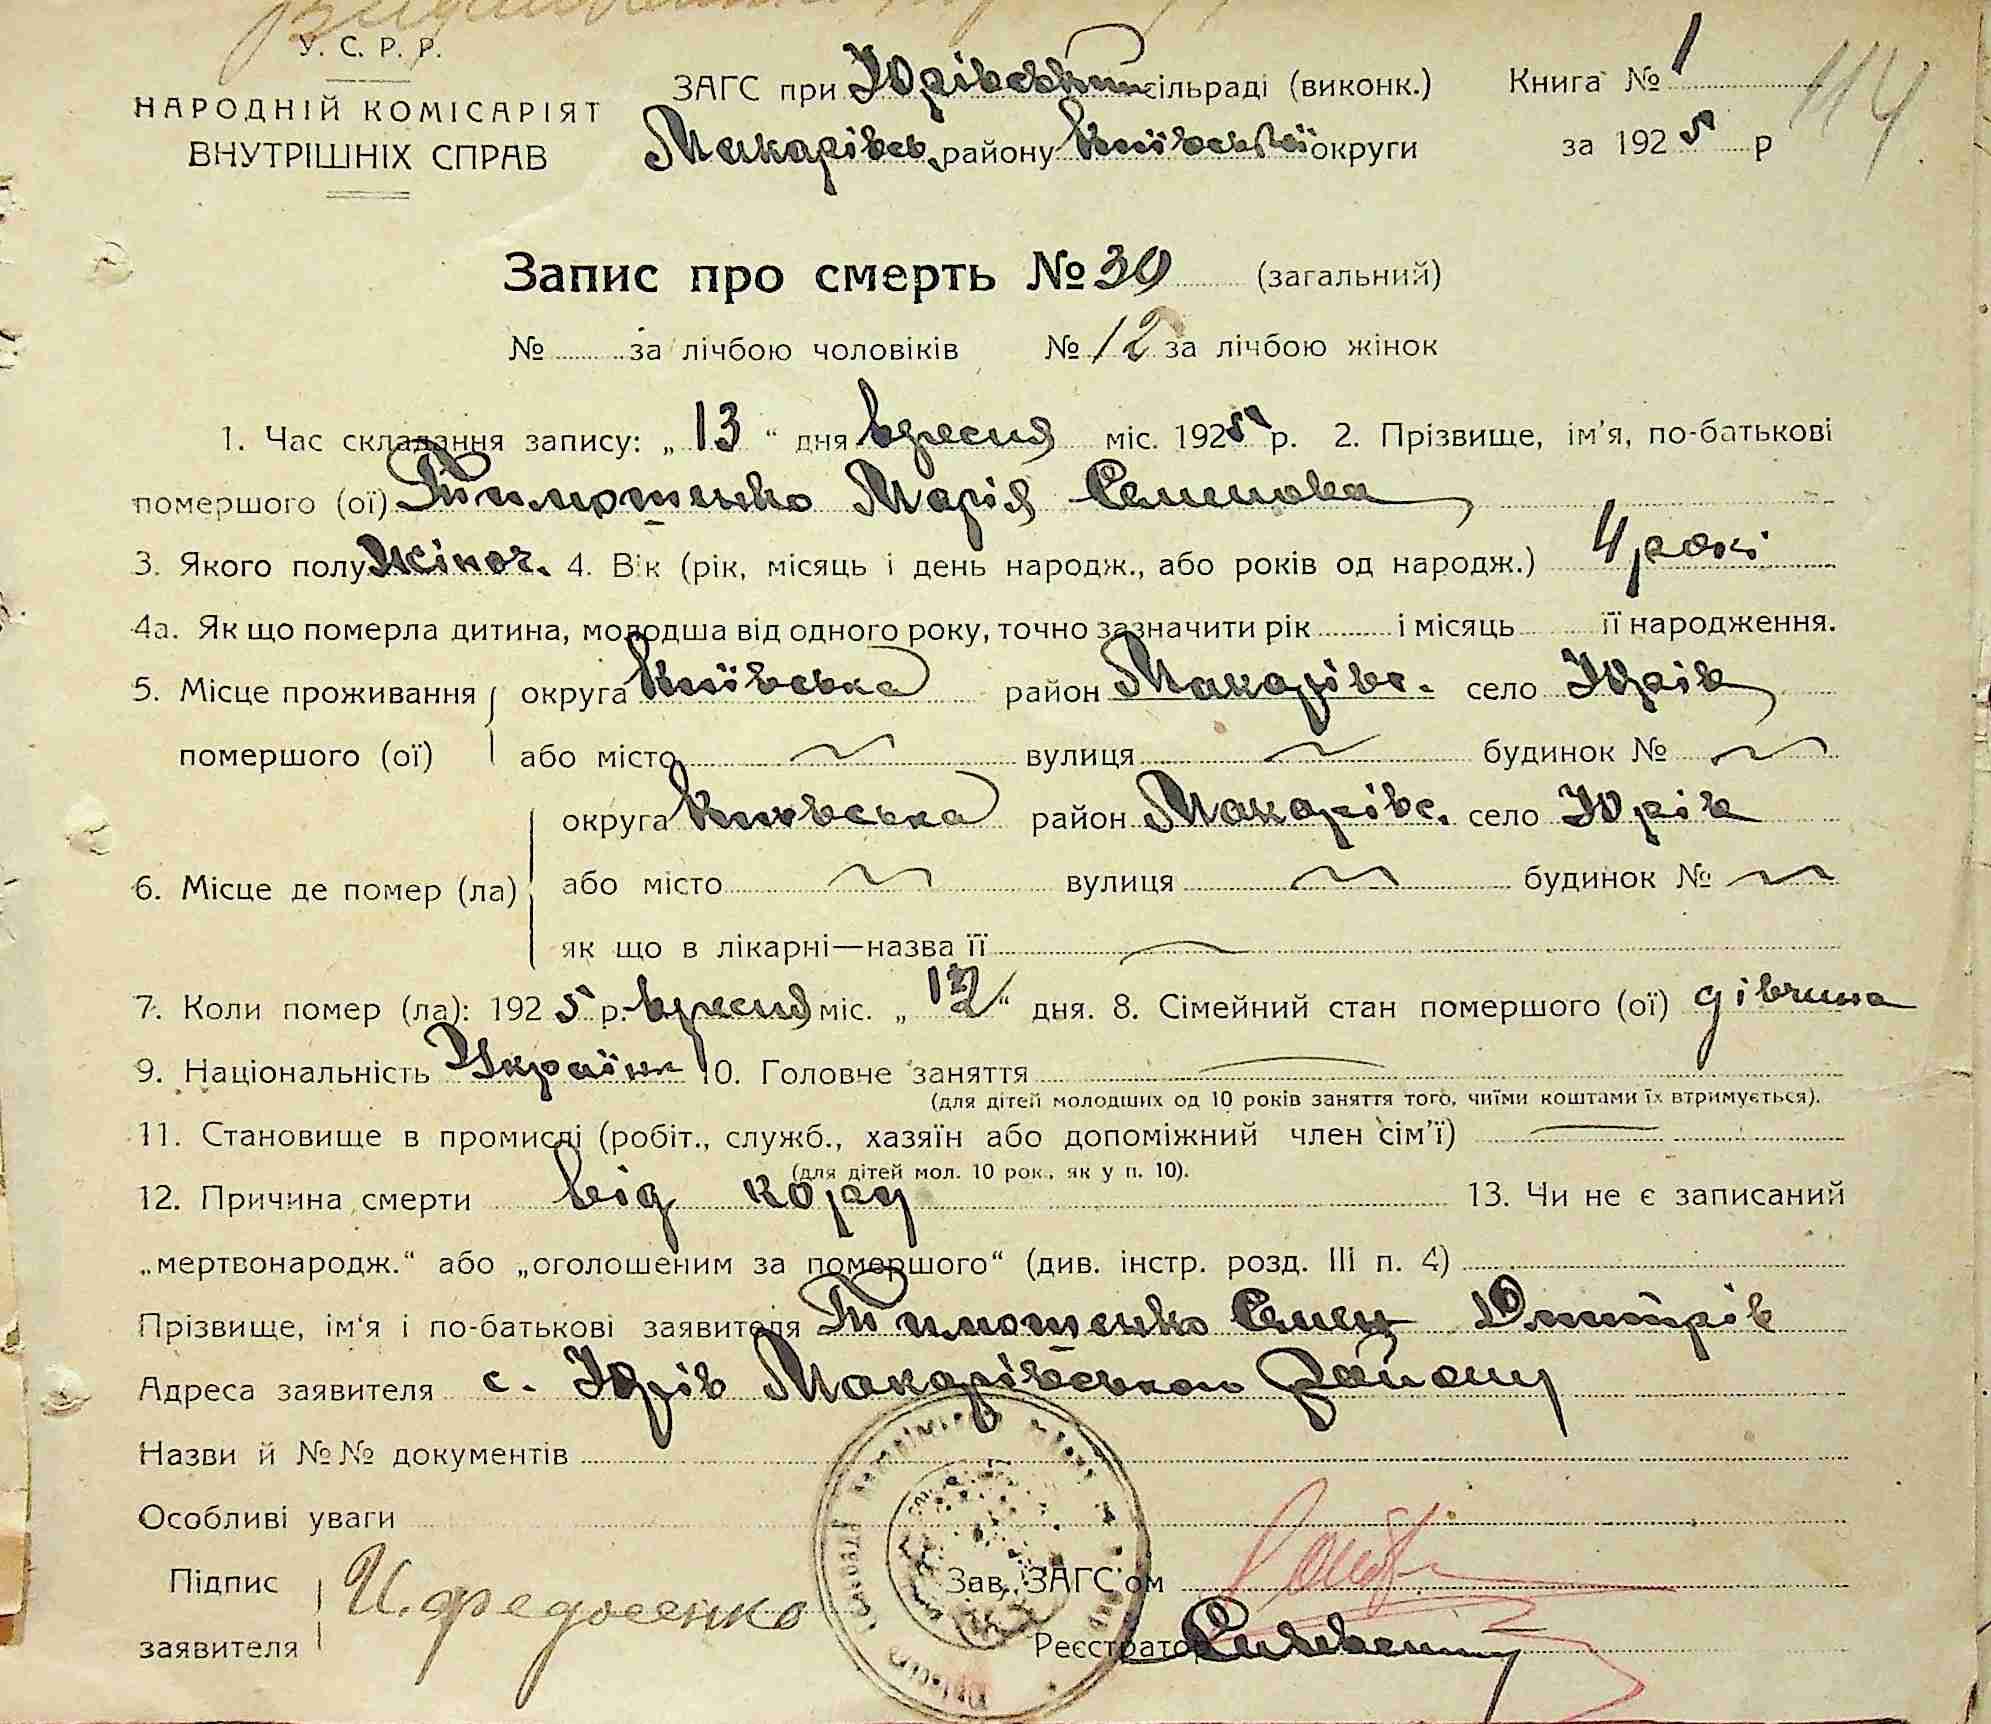 У. С. Р. Р.
НАРОДНІЙ КОМІСАРІЯТ
ВНУТРІШНІХ СПРАВ
ЗАГС при Юрівській сільраді (виконк.)
Макарівсь. району Київської округи
Книга № 1
за 1925 р
114
Запис про смерть № 30 (загальний)
№ за лічбою чоловіків № 12 за лічбою жінок
1. Час складання запису: „ 13 “ дня вресня міс. 1925 р. 2. Прізвище, ім'я, по-батькові
помершого (ої) Тимошенко Марія Семенова
3. Якого полу жіноч. 4. Вік (рік, місяць і день народж., або років од народж.) 4 рокі
4а. Як що померла дитина, молодша від одного року, точно зазначити рік і місяць її народження.
5. Місце проживання округа Київська район Макарівс. село Юрів
помершого (ої) або місто вулиця будинок №
округа Київська район Макарівс. село Юрів
6. Місце де помер (ла) або місто вулиця будинок №
як що в лікарні—назва її
7. Коли помер (ла): 1925 р. вресня міс. „ 12 “ дня. 8. Сімейний стан помершого (ої) дівчина
9. Національність Україн 10. Головне заняття
(для дітей молодших од 10 років заняття того, чиїми коштами їх втримується).
11. Становище в промислі (робіт., служб., хазяїн або допоміжний член сім'ї)
(для дітей мол. 10 рок., як у п. 10).
12. Причина смерти від кору 13. Чи не є записаний
„мертвонародж.“ або „оголошеним за помершого“ (див. інстр. розд. III п. 4)
Прізвище, ім'я і по-батькові заявителя Тимошенко Семен Дмитрів
Адреса заявителя с. Юрів Макарівського району
Назви й №№ документів
Особливі уваги
Підпис заявителя И. Федосенко
Зав. ЗАГС'ом
Реєстратор